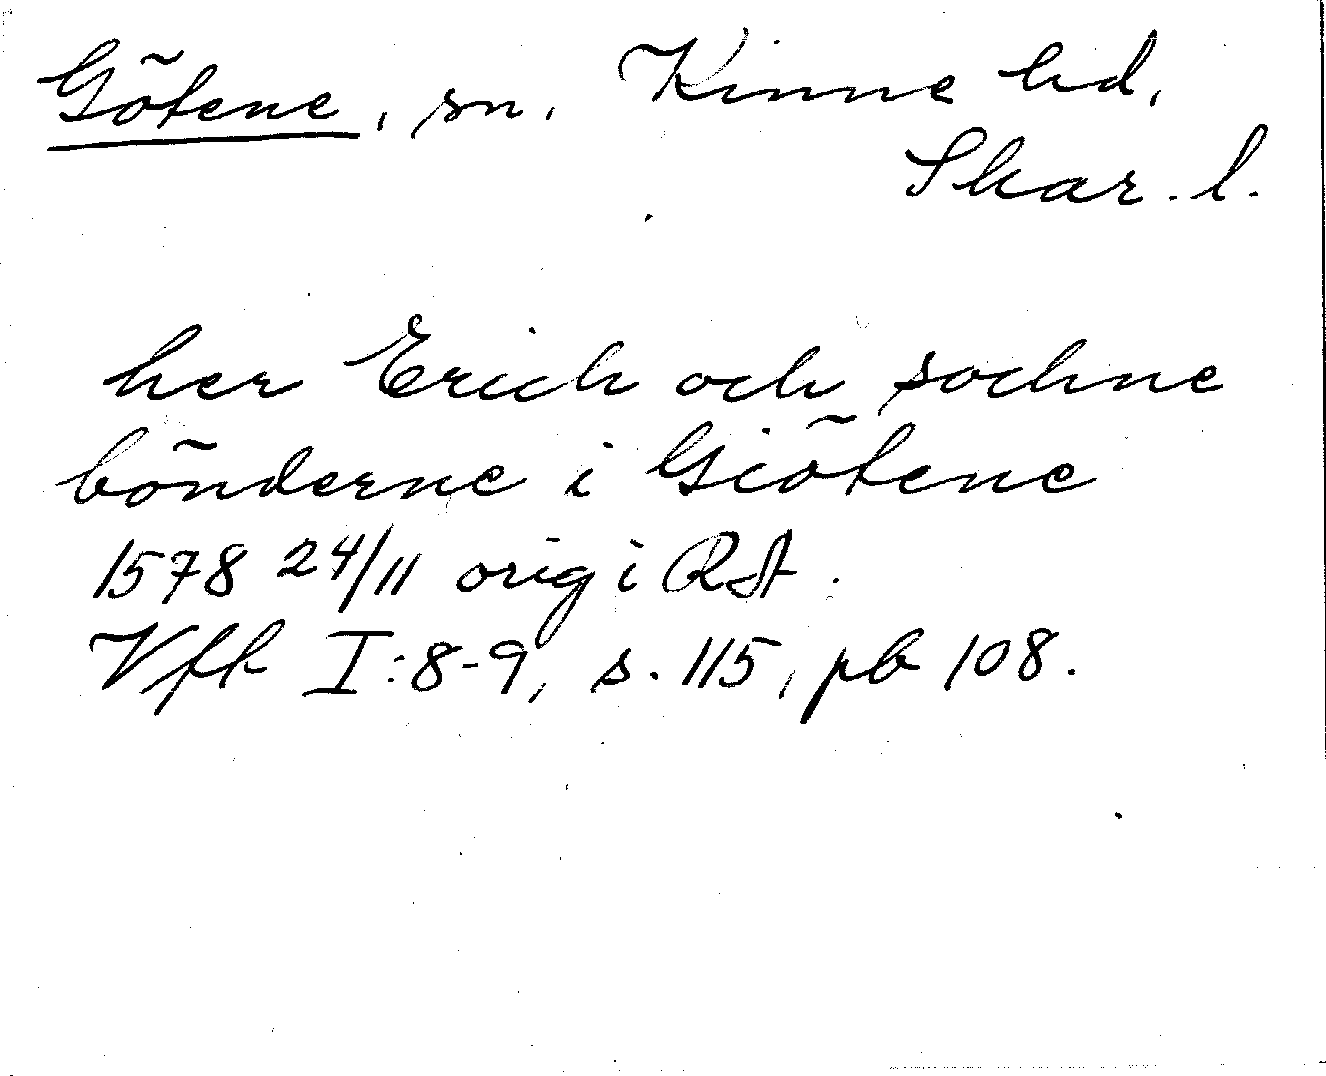 Götene, sn. Kinne hd,
Skar. l.
her Erich och sochne
bönderne i Giötene
1578 24/11 orig i RA.
Vft I:8-9, s. 115, pb 108.